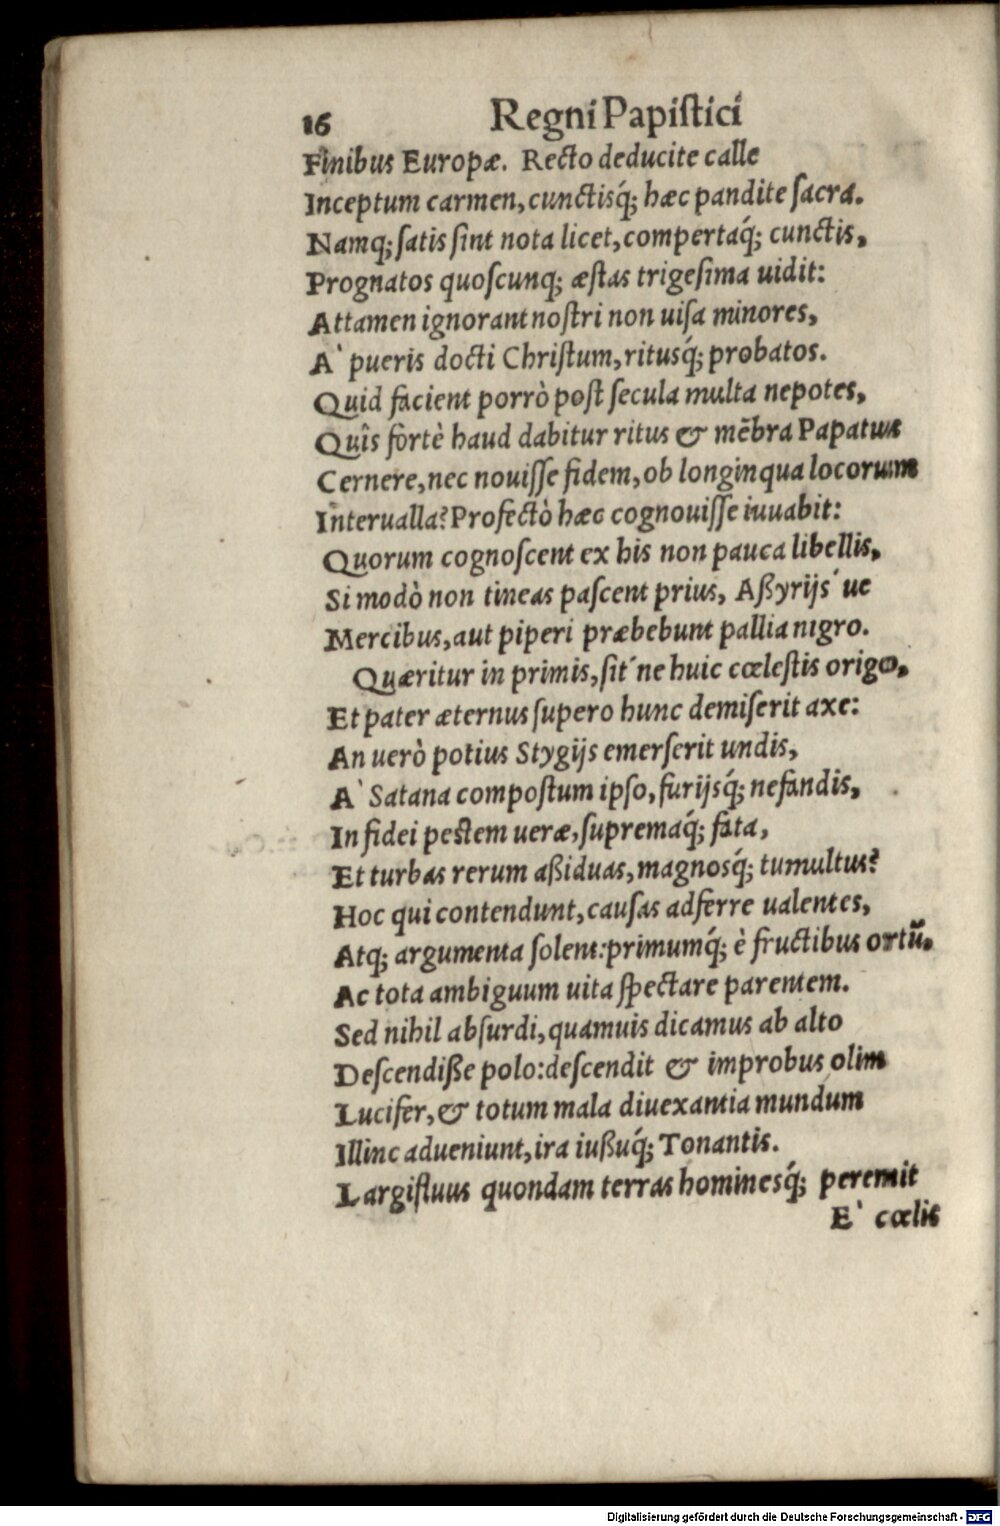 16 Regni Papiſtici
Finibus Europæ. Recto deducite calle
Inceptum carmen, cunctisq́; hæc pandite ſacra.
Namq; ſatis ſint nota licet, compertaq́; cunctis,
Prognatos quoſcunq; æſtas trigeſima uidit:
Attamen ignorant noſtri non uiſa minores,
A` pueris docti Chriſtum, ritusq́; probatos.
Quid facient porrò poſt ſecula multa nepotes,
Quîs fortè haud dabitur ritus & mēbra Papatus
Cernere, nec nouiſſe fidem, ob longinqua locorum
Interualla? Profectò hæc cognouiſſe iuuabit:
Quorum cognoſcent ex his non pauca libellis,
Si modò non tineas paſcent prius, Aßyrijs´ue
Mercibus, aut piperi præbebunt pallia nigro.
Quæritur in primis, ſit´ne huic cœleſtis origo,
Et pater æternus ſupero hunc demiſerit axe:
An uerò potius Stygijs emerſerit undis,
A` Satana compoſtum ipſo, furijsq́; nefandis,
In fidei peſtem ueræ, ſupremaq́; fata,
Et turbas rerum aßiduas, magnosq́; tumultus?
Hoc qui contendunt, cauſas adferre ualentes,
Atq; argumenta ſolent: primumq́; è fructibus ortū.
Ac tota ambiguum uita ſpectare parentem.
Sed nihil abſurdi, quamuis dicamus ab alto
Deſcendiße polo: deſcendit & improbus olim
Lucifer, & totum mala diuexantia mundum
Illinc adueniunt, ira iußuq́; Tonantis.
Largifluus quondam terras hominesq́; peremit
E` cœlis
Digitalisierung gefördert durch die Deutsche Forschungsgemeinschaft - DFG